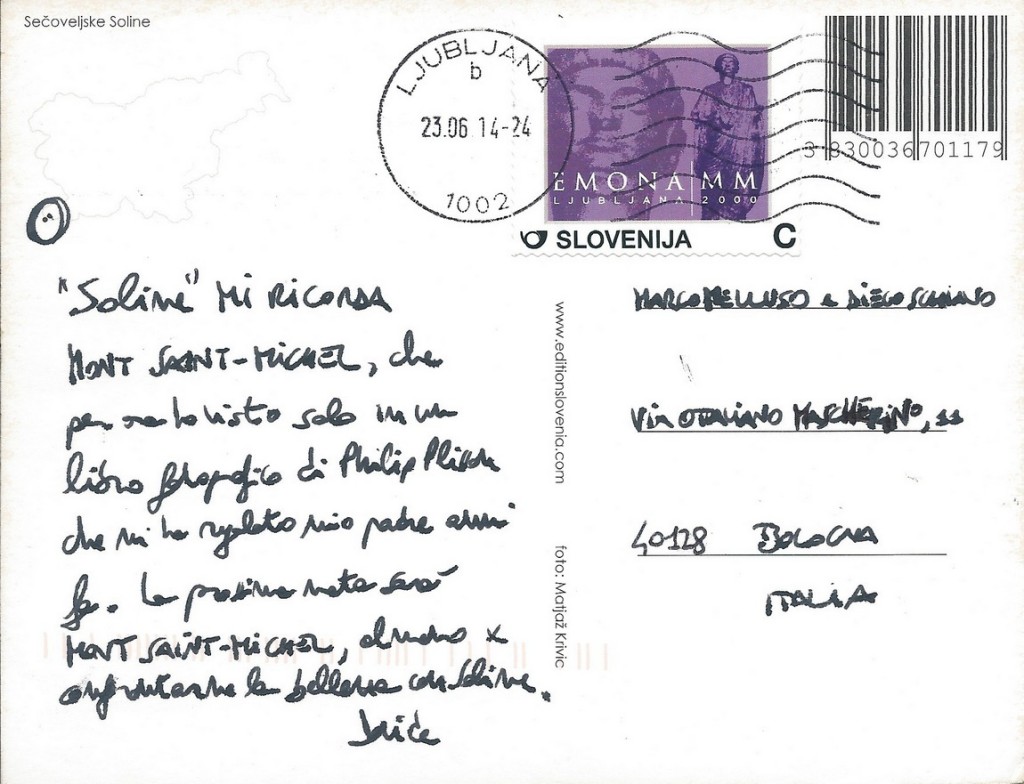 Sečoveljske Soline
LJUBLJANA
b
23.06.14-24
1002
EMONA MM
LJUBLJANA 2000
SLOVENIJA C
3 830036 701179
"Soline" MI RICORDA
MONT SAINT-MICHEL, che
però ho visto solo in un
libro fotografico di Philip Plisson
che mi ha regalato mio padre anni
fa. La prossima meta sarà
MONT SAINT-MICHEL, almeno x
confrontarne la bellezza con Soline.
www.editionslovenia.com
foto: Matjaž Krivic
MARCO MELLUSO e DIEGO SCHIAVO
VIA OTTAVIANO MASCHERINO, 11
40128 BOLOGNA
ITALIA